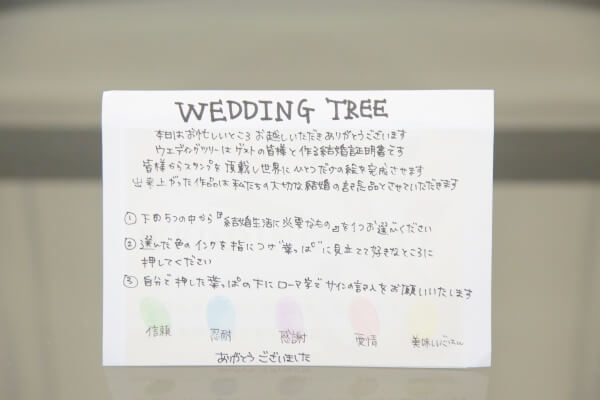 WEDDING TREE
本日はお忙しいところお越しいただきありがとうございます
ウエディングツリーはゲストの皆様と作る結婚証明書です
皆様からスタンプを頂戴し世界にひとつだけの絵を完成させます
出来上がった作品は私たちの大切な結婚の記念品とさせていただきます
① 下の5つの中から『結婚生活に必要なもの』を1つお選びください
② 選んだ色のインクを指につけ"葉っぱ"に見立てて好きなところに
押してください
③ 自分で押した葉っぱの下にローマ字でサインの記入をお願いいたします
信頼 忍耐 感謝 愛情 美味しいごはん
ありがとうございました